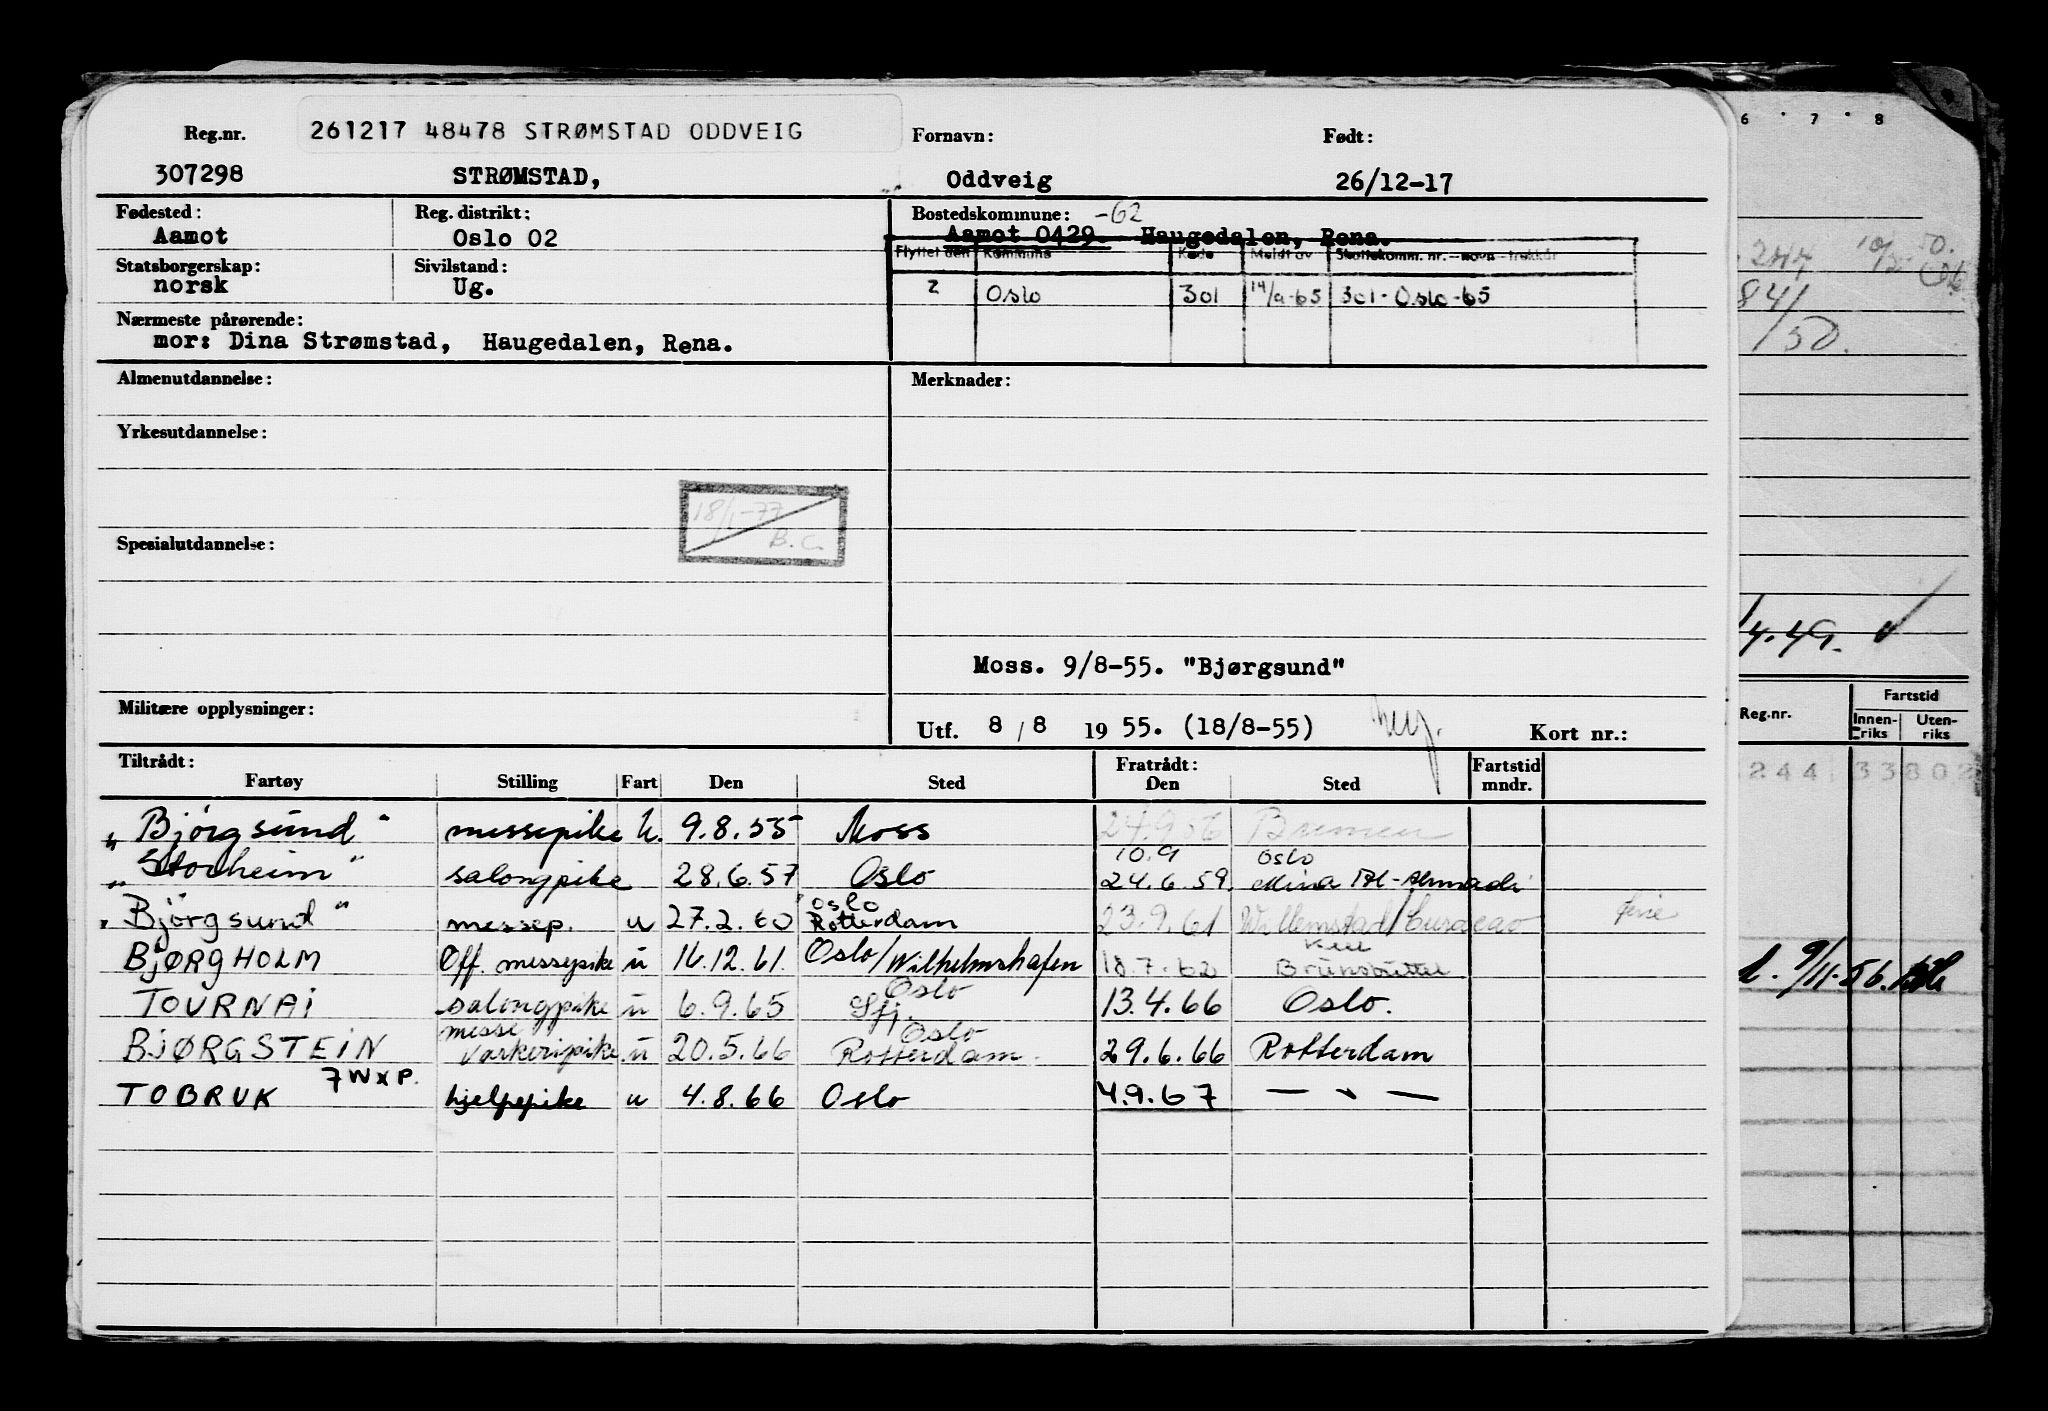 Reg.nr. 261217 48478 STRØMSTAD ODDVEIG Fornavn: Født:
307298 STRØMSTAD, Oddveig 26/12-17
Fødested: Reg. distrikt: Bostedskommune: -62
Aamot Oslo 02 Aamot 0429. Haugedalen, Rena.
Flyttet den Kommune Kode Meldt av Skattekomm. nr. - navn - trekkår
Statsborgerskap: Sivilstand:
norsk Ug. 2 Oslo 301 14/9-65 301-Oslo-65
Nærmeste pårørende:
mor: Dina Strømstad, Haugedalen, Rena.
Almenutdannelse: Merknader:
Yrkesutdannelse:
18/1-77
B.C.
Spesialutdannelse:
Moss. 9/8-55. "Bjørgsund"
Militære opplysninger:
Utf. 8/8 1955. (18/8-55) Kort nr.:
Tiltrådt: Fratrådt: Fartstid
Fartøy Stilling Fart Den Sted Den Sted mndr.
"Bjørgsund" messepike u. 9.8.55 Moss 24.9.56 Bremen
10.9 Oslo
"Storheim" salongpike 28.6.57 Oslo 24.6.59. Mina Al-Ahmadi
Oslo
"Bjørgsund" messep. u 27.2.60 Rotterdam 23.9.61 Willemstad/Curacao ferie
Kiel
BJØRGHOLM Off. messepike u 16.12.61. Oslo/Wilhelmshafen 18.7.62 Brunsbüttel
Oslo
TOURNAI salongpike u 6.9.65 Sfj. 13.4.66 Oslo.
messe Oslo
BJØRGSTEIN u 20.5.66 Rotterdam. 29.6.66 Rotterdam
7WXP.
TOBRUK hjelpepike u 4.8.66 Oslo 4.9.67 — " —
6 · 7 · 8
244 10/5-50.
841
/50.
4.49.
Reg.nr. Fartstid
Innenriks Utenriks
244 33802
9/11-56.